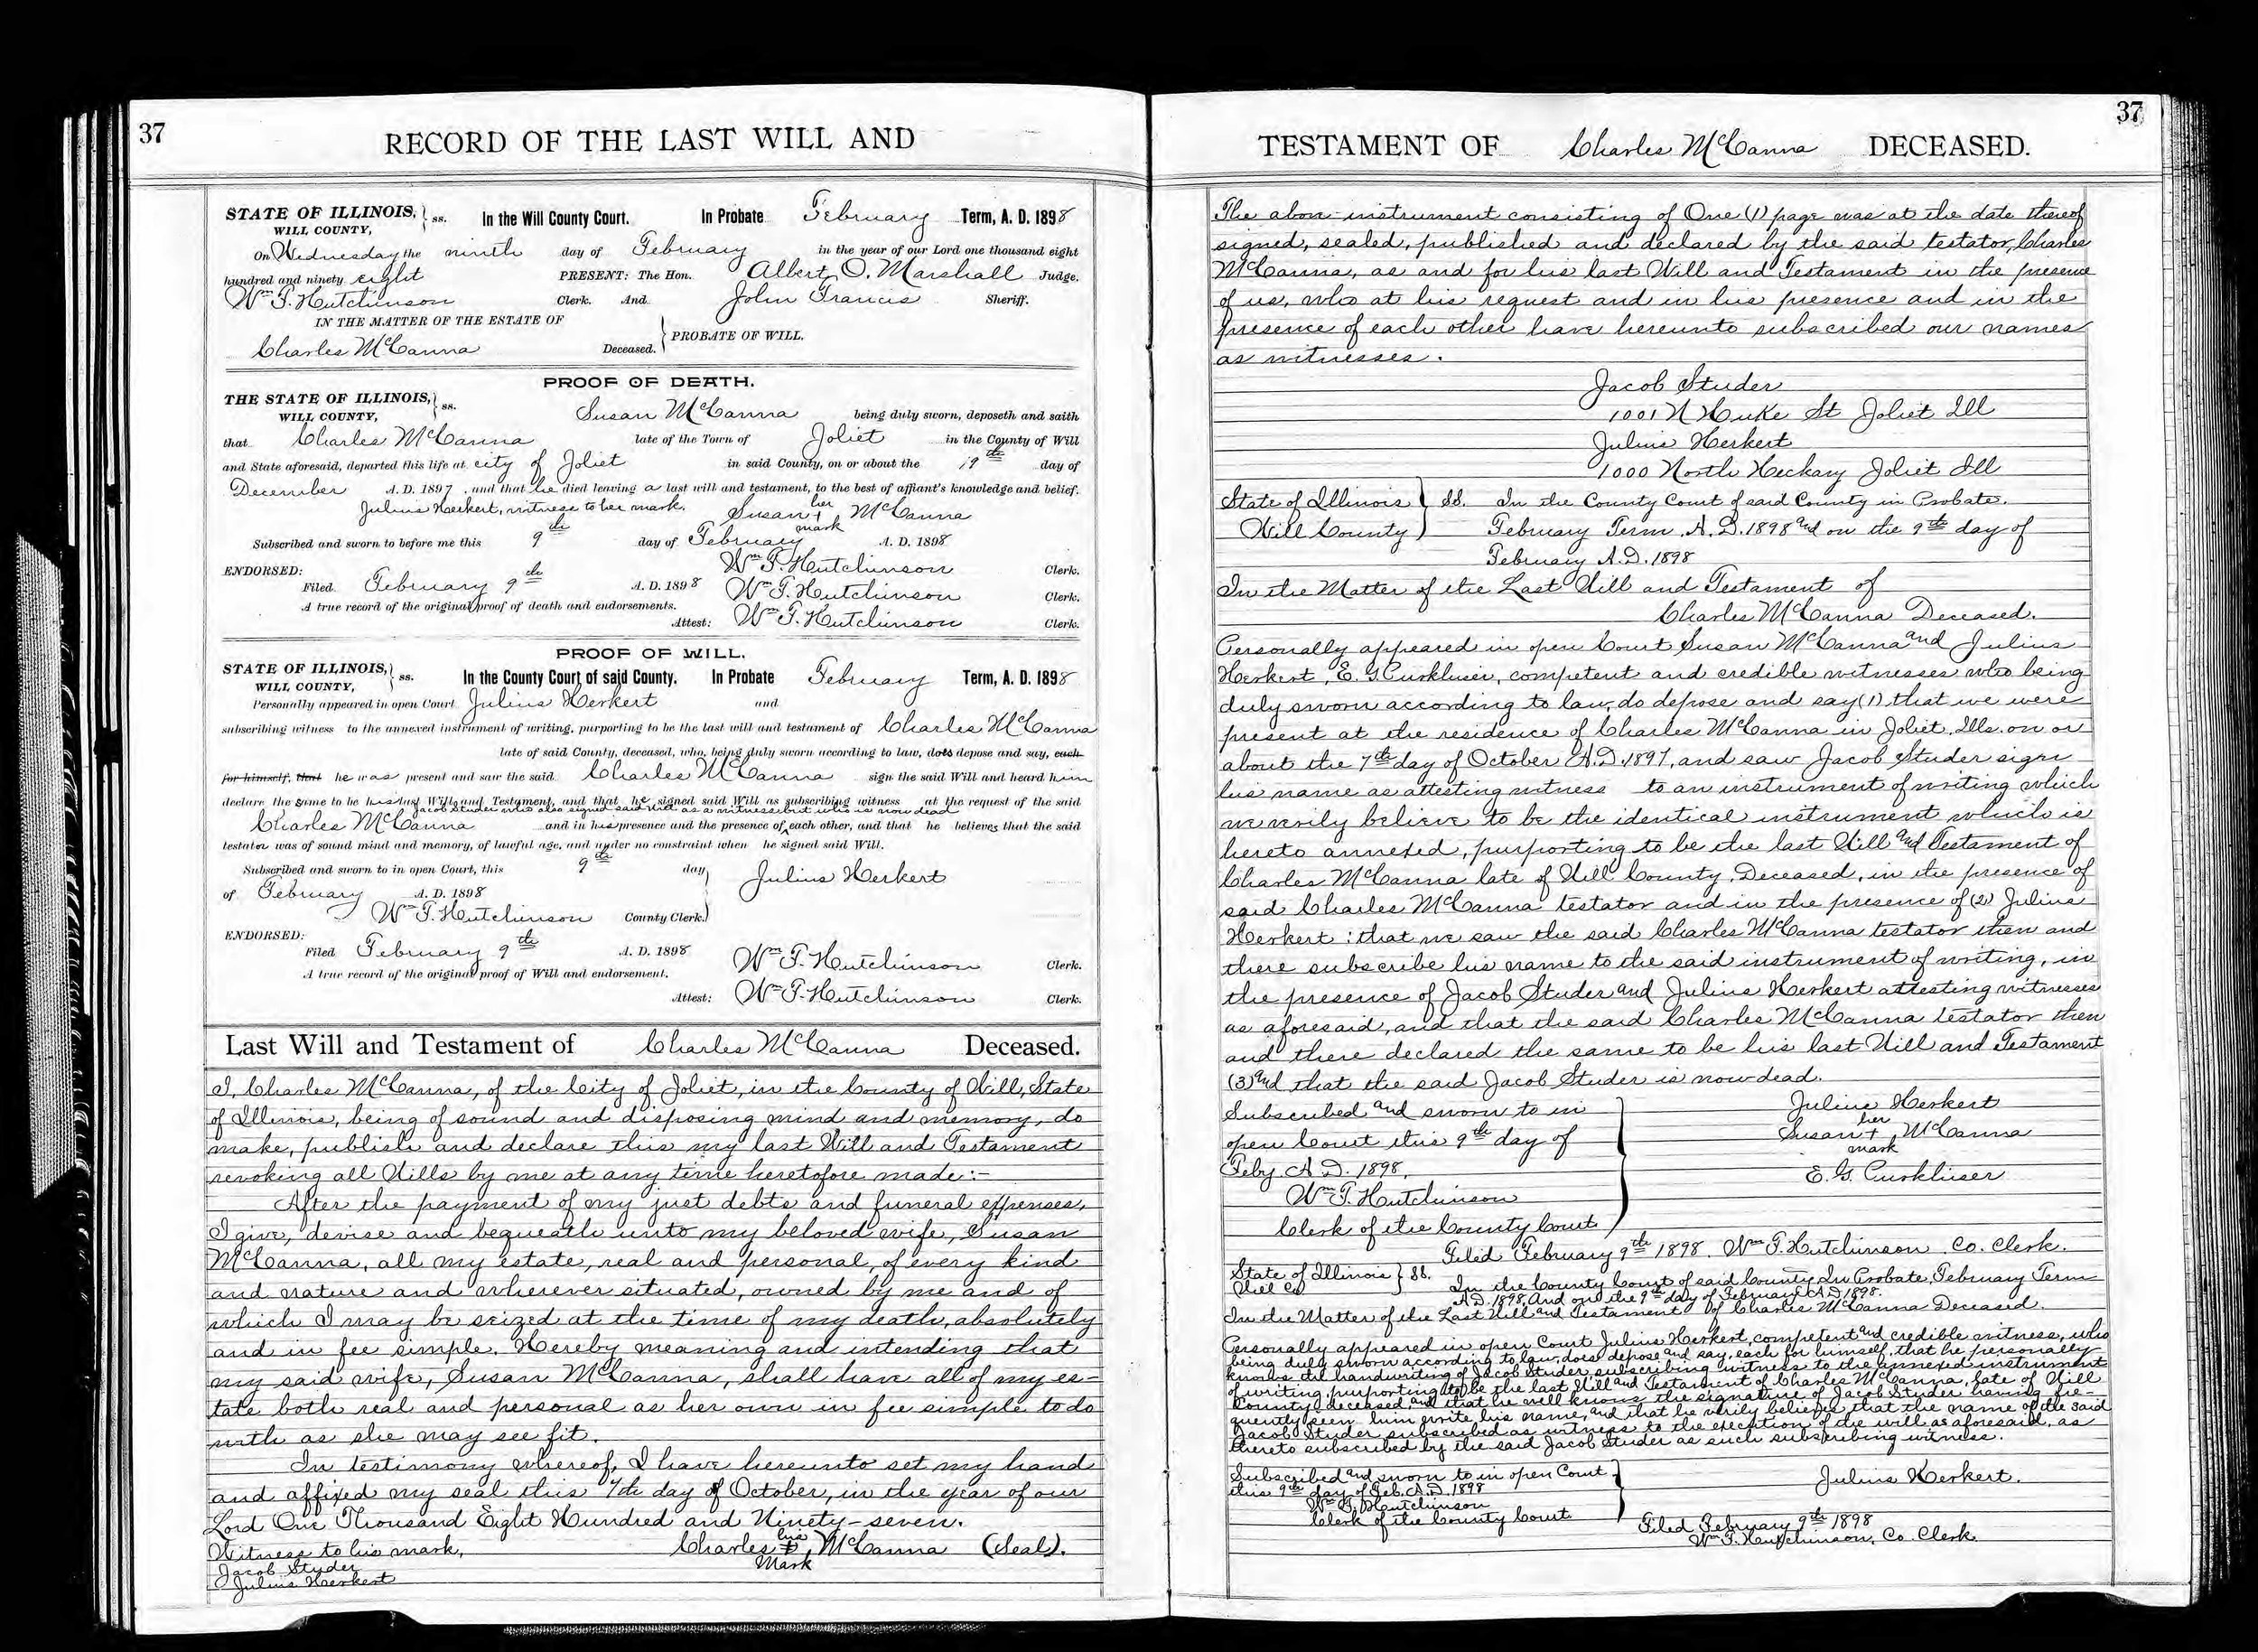 37
RECORD OF THE LAST WILL AND
STATE OF ILLINOIS, } ss. In the Will County Court. In Probate February Term, A. D. 1898
WILL COUNTY,
On Wednesday the ninth day of February in the year of our Lord one thousand eight
hundred and ninety eight PRESENT: The Hon. Albert O. Marshall Judge.
Wm F. Hutchinson Clerk. And John Francis Sheriff.
IN THE MATTER OF THE ESTATE OF
Charles McCanna Deceased. } PROBATE OF WILL.
PROOF OF DEATH.
THE STATE OF ILLINOIS, } ss.
WILL COUNTY, Susan McCanna being duly sworn, deposeth and saith
that Charles McCanna late of the Town of Joliet in the County of Will
and State aforesaid, departed this life at city of Joliet in said County, on or about the 19th day of
December A. D. 1897, and that he died leaving a last will and testament, to the best of affiant's knowledge and belief.
Julius Herkert, witness to her mark. Susan her + mark McCanna
Subscribed and sworn to before me this 9th day of February A. D. 1898
Wm F. Hutchinson Clerk.
ENDORSED:
Filed February 9th A. D. 1898 Wm F. Hutchinson Clerk.
A true record of the original proof of death and endorsements.
Attest: Wm F. Hutchinson Clerk.
PROOF OF WILL.
STATE OF ILLINOIS, } ss. In the County Court of said County. In Probate February Term, A. D. 1898
WILL COUNTY,
Personally appeared in open Court Julius Herkert and
subscribing witness to the annexed instrument of writing, purporting to be the last will and testament of Charles McCanna
late of said County, deceased, who, being duly sworn according to law, does depose and say, each
for himself, that he was present and saw the said Charles McCanna sign the said Will and heard him
declare the same to be his last Will and Testament, and that he signed said Will as subscribing witness at the request of the said
Jacob Studer who also signed said will as a witness but who is now dead
Charles McCanna and in his presence and the presence of each other, and that he believes that the said
testator was of sound mind and memory, of lawful age, and under no constraint when he signed said Will.
Subscribed and sworn to in open Court, this 9th day
of February A. D. 1898 Julius Herkert
Wm F. Hutchinson County Clerk.
ENDORSED:
Filed February 9th A. D. 1898 Wm F. Hutchinson Clerk.
A true record of the original proof of Will and endorsement.
Attest: Wm F. Hutchinson Clerk.
Last Will and Testament of Charles McCanna Deceased.
I, Charles McCanna, of the City of Joliet, in the County of Will, State
of Illinois, being of sound and disposing mind and memory, do
make, publish and declare this my last Will and Testament
revoking all Wills by me at any time heretofore made:-
After the payment of my just debts and funeral expenses,
I give, devise and bequeath unto my beloved wife, Susan
McCanna, all my estate, real and personal, of every kind
and nature and wherever situated, owned by me and of
which I may be seized at the time of my death, absolutely
and in fee simple. Hereby meaning and intending that
my said wife, Susan McCanna, shall have all of my es-
tate both real and personal as her own in fee simple to do
with as she may see fit.
In testimony whereof, I have hereunto set my hand
and affixed my seal this 7th day of October, in the year of our
Lord One Thousand Eight Hundred and Ninety-seven.
Witness to his mark, Charles his + Mark McCanna (Seal).
Jacob Studer
Julius Herkert
37
TESTAMENT OF Charles McCanna DECEASED.
The above instrument consisting of One (1) page was at the date thereof
signed, sealed, published and declared by the said testator, Charles
McCanna, as and for his last Will and Testament in the presence
of us, who at his request and in his presence and in the
presence of each other have hereunto subscribed our names
as witnesses.
Jacob Studer
1001 N Huke St Joliet Ill
Julius Herkert
1000 North Heckary Joliet Ill
State of Illinois } SS. In the County Court of said County in Probate.
Will County } February Term, A. D. 1898 and on the 9th day of
February A. D. 1898
In the Matter of the Last Will and Testament of
Charles McCanna Deceased.
Personally appeared in open Court Susan McCanna and Julius
Herkert, E. G. competent and credible witnesses who being
duly sworn according to law, do depose and say (1) that we were
present at the residence of Charles McCanna in Joliet, Ills. on or
about the 7th day of October A. D. 1897, and saw Jacob Studer sign
his name as attesting witness to an instrument of writing which
we verily believe to be the identical instrument which is
hereto annexed, purporting to be the last Will and Testament of
Charles McCanna late of Will County, Deceased, in the presence of
said Charles McCanna testator and in the presence of (2) Julius
Herkert: that we saw the said Charles McCanna testator then and
there subscribe his name to the said instrument of writing, in
the presence of Jacob Studer and Julius Herkert attesting witnesses
as aforesaid, and that the said Charles McCanna testator then
and there declared the same to be his last Will and Testament
(3) and that the said Jacob Studer is now dead.
Subscribed and sworn to in Julius Herkert
open Court this 9th day of Susan her + mark McCanna
Feby. A. D. 1898, E. G.
Wm F. Hutchinson
Clerk of the County Court
Filed February 9th 1898. Wm F. Hutchinson. Co. Clerk.
State of Illinois } SS. In the County Court of said County, In Probate, February Term
Will Co } A. D. 1898, And on the 9th day of February A. D. 1898.
In the Matter of the Last Will and Testament of Charles McCanna Deceased.
Personally appeared in open Court Julius Herkert, competent and credible witness, who
being duly sworn according to law, does depose and say, each for himself, that he personally
knows the handwriting of Jacob Studer, subscribing witness to the annexed instrument
of writing, purporting to be the last Will and Testament of Charles McCanna, late of Will
County, deceased, and that he well knows the signature of Jacob Studer having fre-
quently seen him write his name, and that he verily believes that the name of the said
Jacob Studer subscribed as witness to the execution of the will as aforesaid, as
thereto subscribed by the said Jacob Studer as such subscribing witness.
Subscribed and sworn to in open Court Julius Herkert.
this 9th day of Feb. A. D. 1898
Wm F. Hutchinson
Clerk of the County Court
Filed February 9th 1898
Wm F. Hutchinson, Co. Clerk.